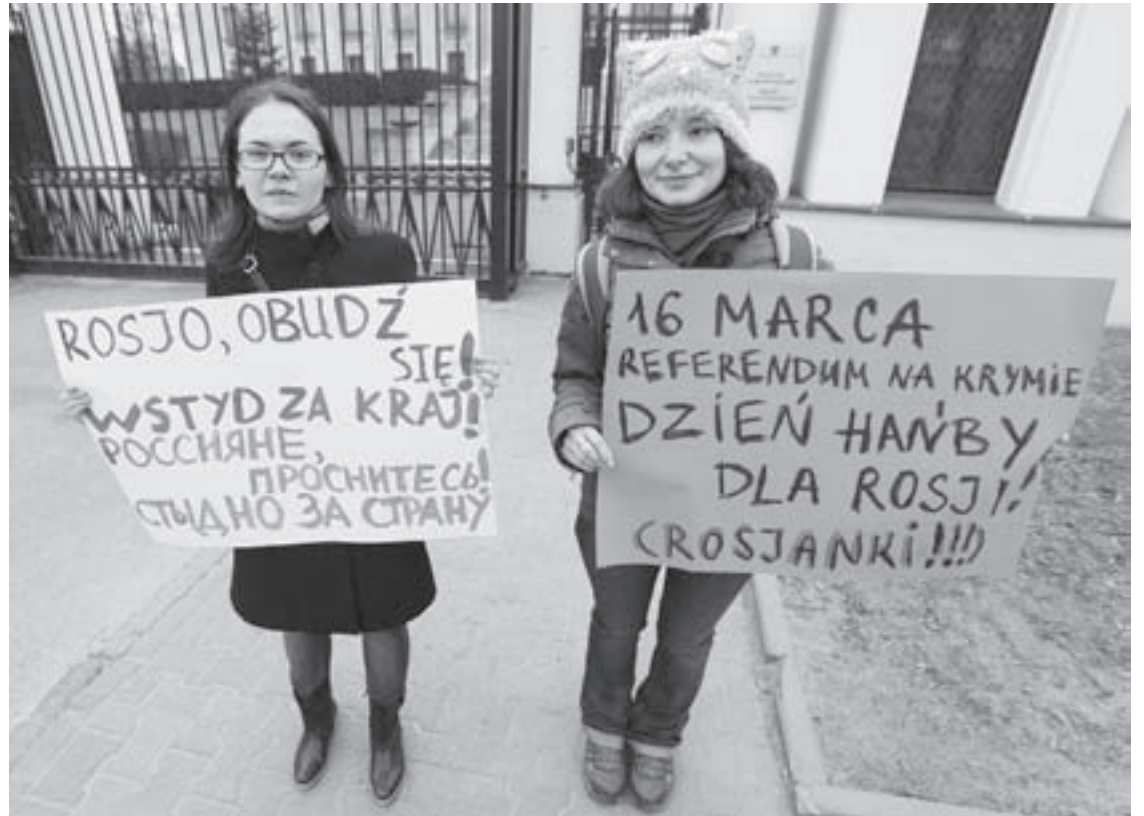 ROSJO, OBUDŹ
SIĘ!
WSTYD ZA KRAJ!
РОССИЯНЕ,
ПРОСНИТЕСЬ!
СТЫДНО ЗА СТРАНУ
16 MARCA
REFERENDUM NA KRYMIE
DZIEŃ HAŃBY
DLA ROSJI!
(ROSJANKI!!!)